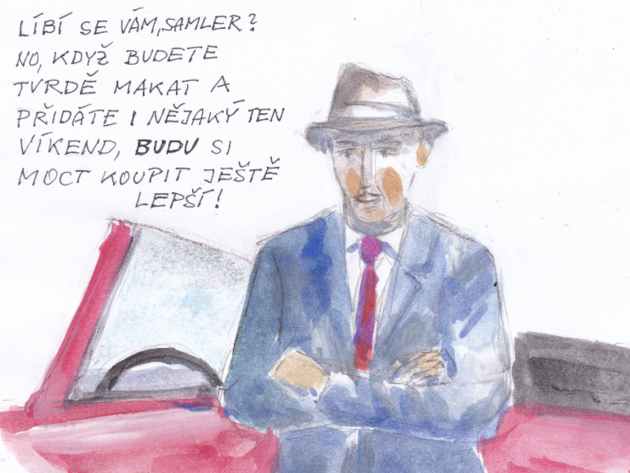 LÍBÍ SE VÁM, SAMLER?
NO, KDYŽ BUDETE
TVRDĚ MAKAT A
PŘIDÁTE I NĚJAKÝ TEN
VÍKEND, BUDU SI
MOCT KOUPIT JEŠTĚ
LEPŠÍ!